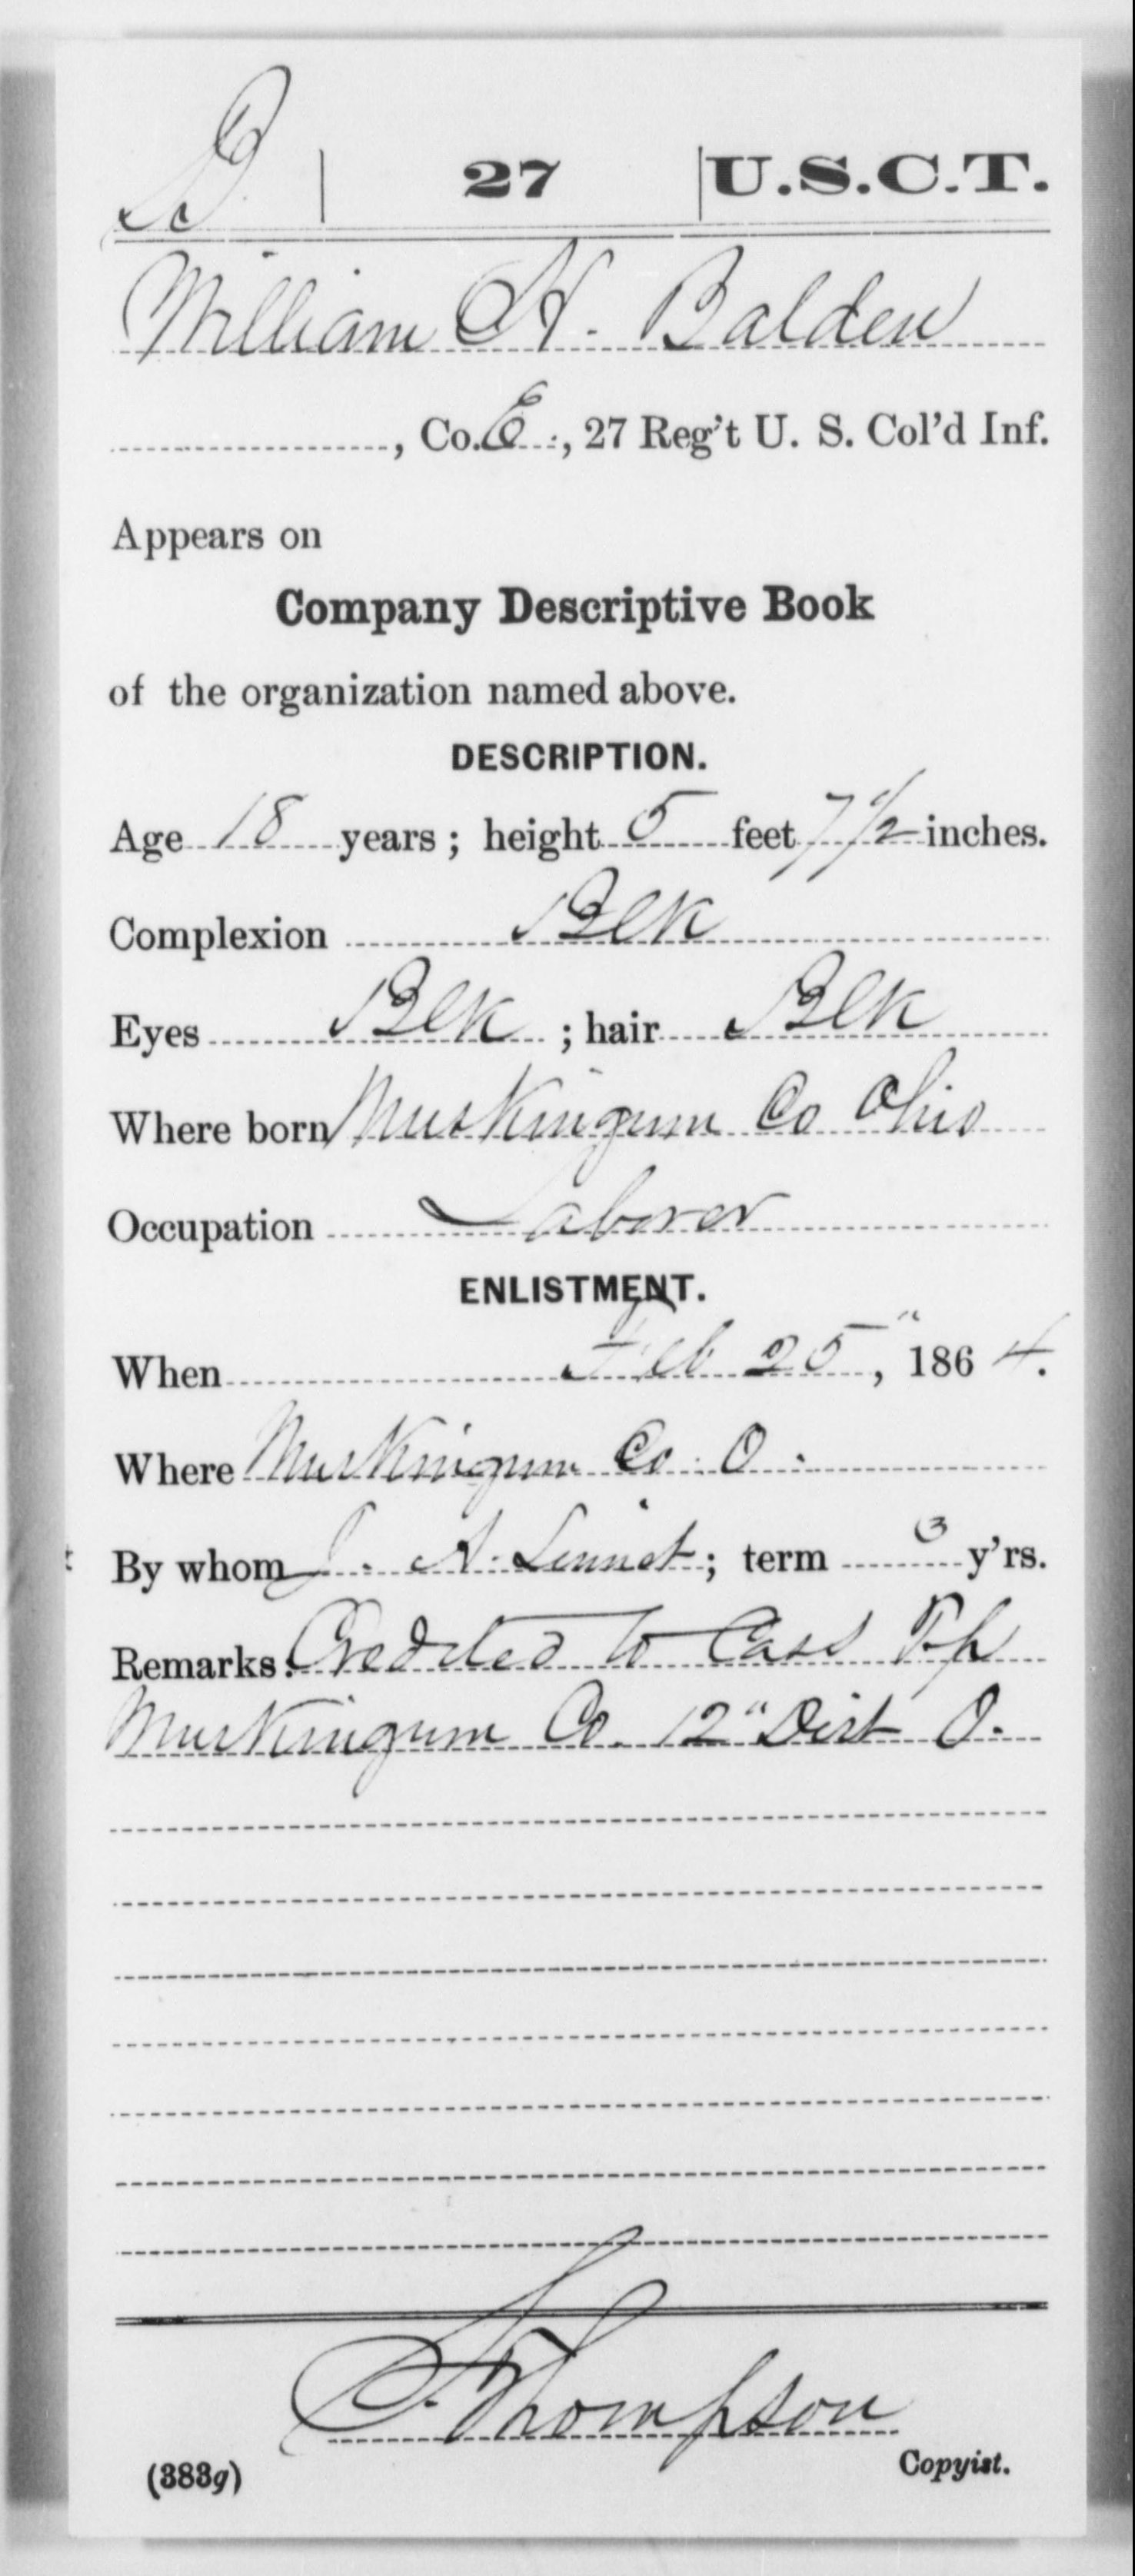 B | 27 | U.S.C.T.
William H. Balden
, Co. E., 27 Reg't U. S. Col'd Inf.
Appears on
Company Descriptive Book
of the organization named above.
DESCRIPTION.
Age 18 years; height 5 feet 7 1/2 inches.
Complexion Blk
Eyes Blk; hair Blk
Where born Muskingum Co Ohio
Occupation Laborer
ENLISTMENT.
When Feb 25", 1864.
Where Muskingum Co. O.
By whom J. A. ; term 3 y'rs.
Remarks: Credited to Cass Tp
Muskingum Co. 12" Dist O.
Thompson
(383g) Copyist.